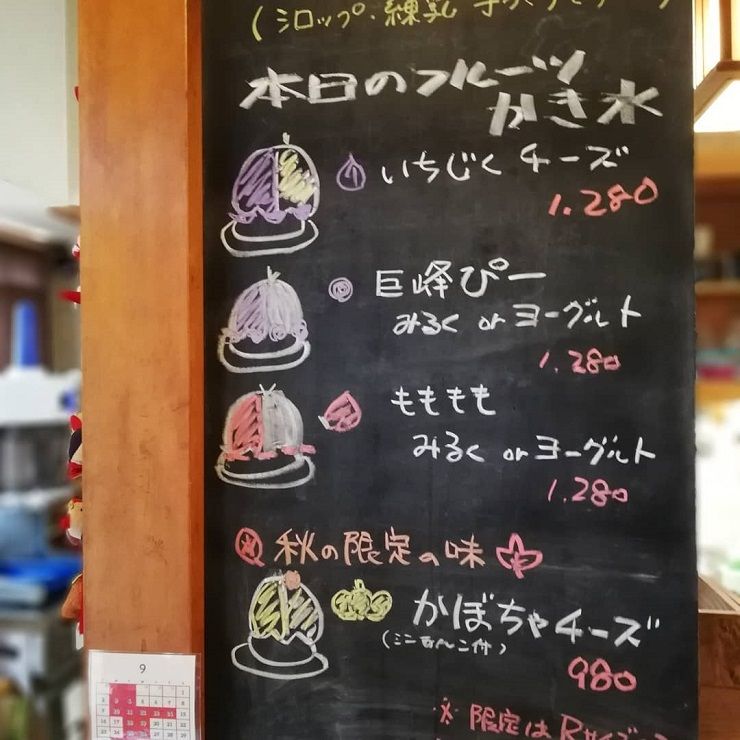 (シロップ・練乳
本日のフルーツ
かき氷
いちじくチーズ
1.280
巨峰ぴー
みるく or ヨーグルト
1.280
もももも
みるく or ヨーグルト
1.280
秋の限定の味
かぼちゃチーズ
980
※ 限定は Rサイズ
9